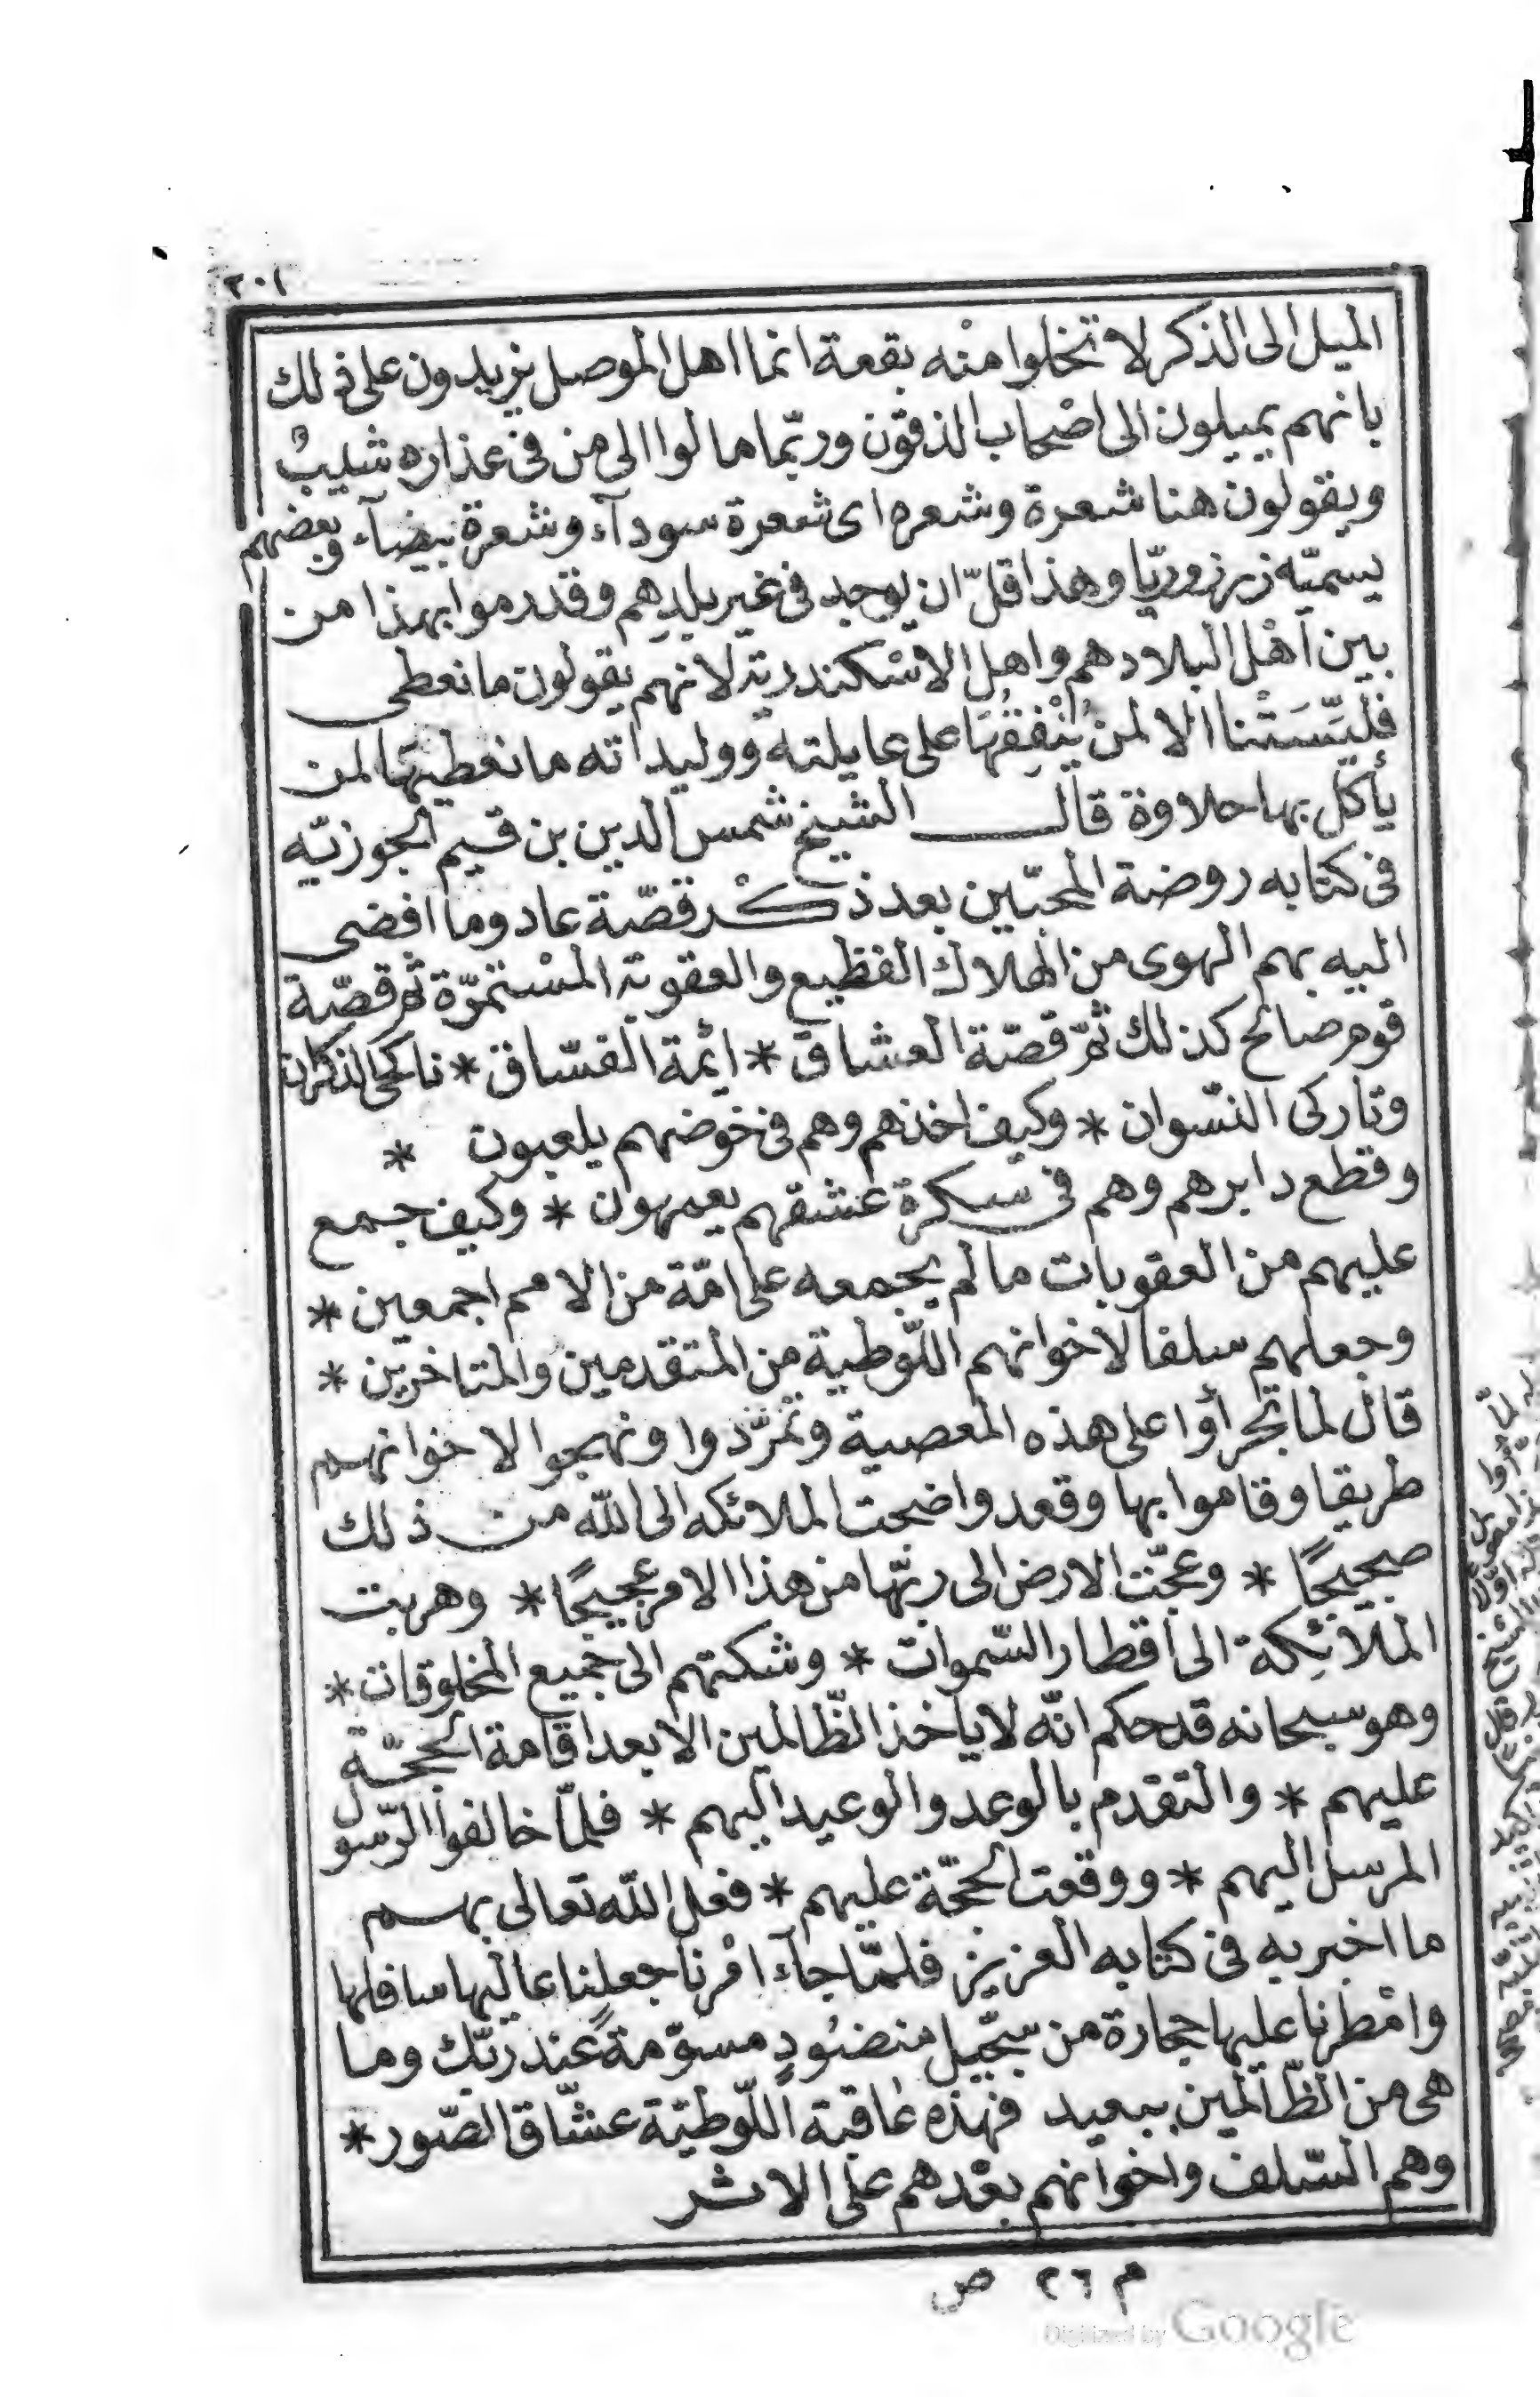 ٢٠١
الميل الى الذكر لا تخلوا منه بقعة انما اهل الموصل يزيدون على ذلك
بانهم يميلون الى اصحاب الذقون وربّما مالوا الى من فى عذاره شيبٌ
ويقولون هنا شعرة وشعره اى شعرة سودآء وشعرة بيضآء وبعضهم
يسميّه زرزوريّا وهذا قلّ ان يوجد فى غير بلدِهم وقد رموا بهذا من
بين اهْل البلاد هم واهل الاسْكندرية لانهم يقولون ما نعطى
فلَيّسَتْنا الا لمن يُنْفِقُهَا على عايلته ووليداته ما نعطيهَا لمن
يأكل بها حلاوة قال الشيخ شمس الدين بن قيم الجوزيّه
فى كتابه روضة المحبّين بعد ذكْر قصّة عاد وما افضى
اليه بهم الهوى من الهلاك الفظيع والعقوبة المسْتمرّة ثم قصّة
قوم صالح كذلك ثمّ قصّة العشاق * ائمة الفسّاق * ناكحى الذكران
وتاركى النسّوان * وكيف اخذهم وهم فى خوْضهم يلعبون *
وقطع دابرهم وهم فى سكرة عشقهم يعمهون * وكيف جمع
عليهم من العقوبات ما لم يجمعه على امّة من الامم اجمعين *
وجعلهم سلفا لاخوانهم اللّوطية من المتقدمين والمتاخرين *
قال لما تجرأوا على هذه المعصية وتمرّدوا ونهجوا لاخوانهم
طريقا وقاموا بها وقعدوا ضجت الملائكه الى الله من ذلك
ضجيجًا * وعجّت الارض الى ربّها من هذا الامر عجيجًا * وهربت
الملآئِكة الى اقطار السّموات * وشكتهم الى جميع المخلوقات *
وهو سبحانه قد حكم انّه لا ياخذ الظّالمين الا بعد اقامة الحجّة
عليهم * والتقدم بالوعد والوعيد اليهم * فلمّا خالفوا الرّسول
المرسل اليهم * ووقعت الحجّة عليهم * فعل الله تعالى بهم
ما اخبر به فى كتابه العزيز فلمّا جآء امْرنا جعلنا عاليها سافلها
وامْطرنا عليها حجارة من سجّيل منضُودٍ مسوّمةً عند ربّك وما
هى من الظّالمين ببعيد فهذه عاقبة اللّوطيّة عشّاق الصّور *
وهم السّلف واخوانهم بعْدهم على الاثر
م ٢٦ ص
Digitized by Google